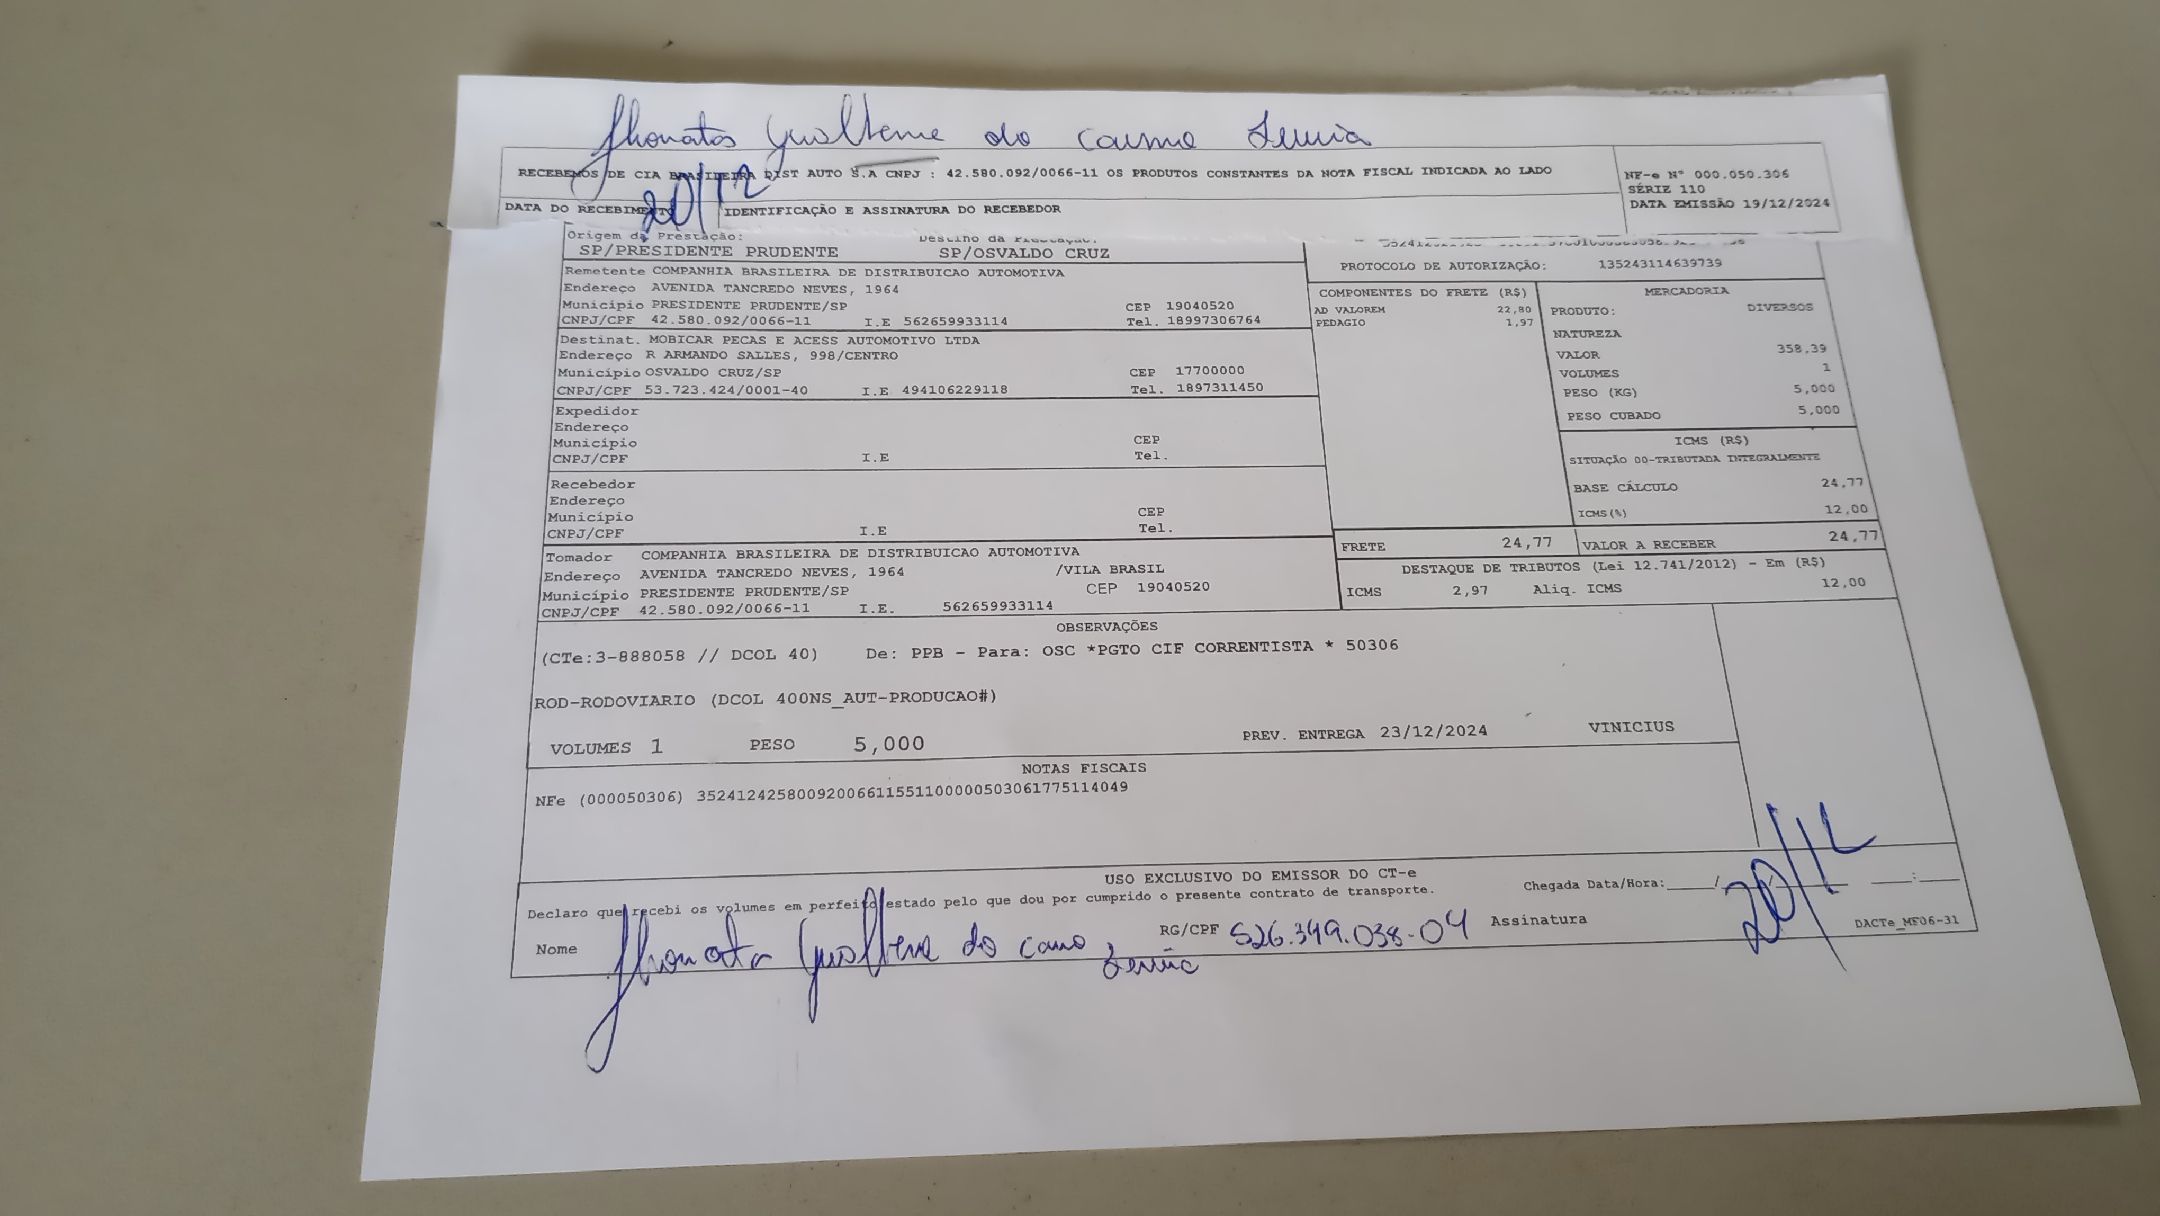 Jhonatas Guilherme do Carmo
RECEBEMOS DE CIA BRASILEIRA DIST AUTO S.A CNPJ : 42.580.092/0066-11 OS PRODUTOS CONSTANTES DA NOTA FISCAL INDICADA AO LADO
NF-e Nº 000.050.306
SÉRIE 110
DATA EMISSÃO 19/12/2024
20/12
DATA DO RECEBIMENTO IDENTIFICAÇÃO E ASSINATURA DO RECEBEDOR
Origem da Prestação: Destino da Prestação:
SP/PRESIDENTE PRUDENTE SP/OSVALDO CRUZ
PROTOCOLO DE AUTORIZAÇÃO: 135243114639739
Remetente COMPANHIA BRASILEIRA DE DISTRIBUICAO AUTOMOTIVA
Endereço AVENIDA TANCREDO NEVES, 1964
Município PRESIDENTE PRUDENTE/SP CEP 19040520
CNPJ/CPF 42.580.092/0066-11 I.E 562659933114 Tel. 18997306764
Destinat. MOBICAR PECAS E ACESS AUTOMOTIVO LTDA
Endereço R ARMANDO SALLES, 998/CENTRO
Município OSVALDO CRUZ/SP CEP 17700000
CNPJ/CPF 53.723.424/0001-40 I.E 494106229118 Tel. 1897311450
Expedidor
Endereço
Município CEP
CNPJ/CPF I.E Tel.
Recebedor
Endereço
Município CEP
CNPJ/CPF I.E Tel.
Tomador COMPANHIA BRASILEIRA DE DISTRIBUICAO AUTOMOTIVA
Endereço AVENIDA TANCREDO NEVES, 1964 /VILA BRASIL
Município PRESIDENTE PRUDENTE/SP CEP 19040520
CNPJ/CPF 42.580.092/0066-11 I.E. 562659933114
COMPONENTES DO FRETE (R$)
AD VALOREM 22,80
PEDAGIO 1,97
MERCADORIA
PRODUTO: DIVERSOS
NATUREZA
VALOR 358,39
VOLUMES 1
PESO (KG) 5,000
PESO CUBADO 5,000
ICMS (R$)
SITUAÇÃO 00-TRIBUTADA INTEGRALMENTE
BASE CÁLCULO 24,77
ICMS(%) 12,00
FRETE 24,77 VALOR A RECEBER 24,77
DESTAQUE DE TRIBUTOS (Lei 12.741/2012) - Em (R$)
ICMS 2,97 Aliq. ICMS 12,00
OBSERVAÇÕES
(CTe:3-888058 // DCOL 40) De: PPB - Para: OSC *PGTO CIF CORRENTISTA * 50306
ROD-RODOVIARIO (DCOL 400NS_AUT-PRODUCAO#)
VOLUMES 1 PESO 5,000 PREV. ENTREGA 23/12/2024 VINICIUS
NOTAS FISCAIS
NFe (000050306) 35241242580092006611551100000503061775114049
USO EXCLUSIVO DO EMISSOR DO CT-e
Declaro que recebi os volumes em perfeito estado pelo que dou por cumprido o presente contrato de transporte.
Chegada Data/Hora: ____/____/____ ____:____
20/12
Nome Jhonata Guilherme do Carmo RG/CPF 526.349.038-04 Assinatura
DACTe_MF06-31